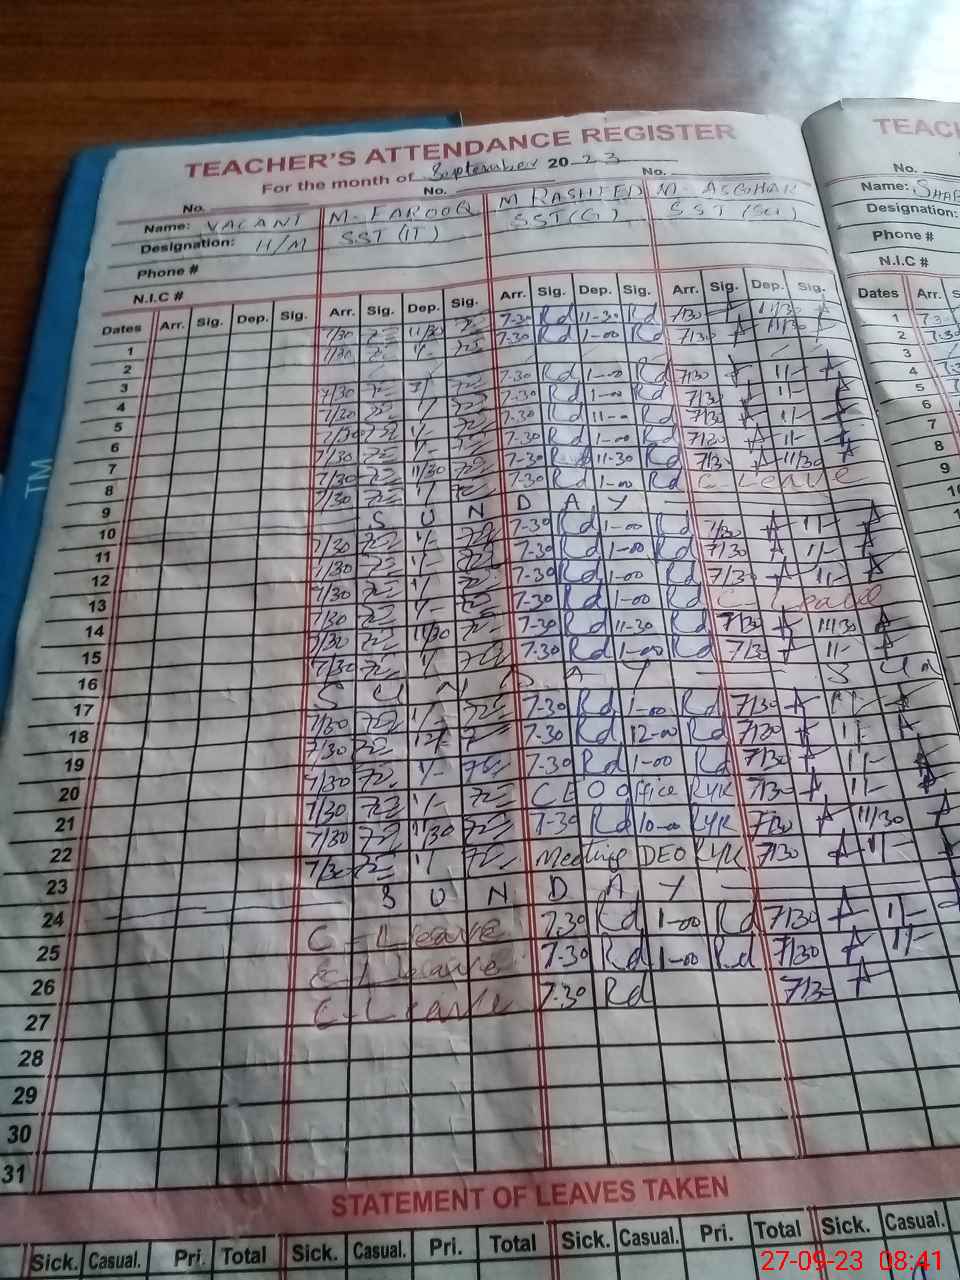 TEACHER'S ATTENDANCE REGISTER
For the month of September 2023
No. No. No.
Name: VACANT M-FAROOQ M RASHEED M-ASGHAR
Designation: H/M SST(IT) SST(G) SST(Sci)
Phone #
N.I.C #
Dates Arr. Sig. Dep. Sig. Arr. Sig. Dep. Sig. Arr. Sig. Dep. Sig. Arr. Sig. Dep. Sig.
1 7/30 11/30 7-30 Rd 11-30 Rd 7/30 11/30
2 7/30 1/- 7-30 Rd 1-00 Rd 7/30 11/30
3
4 7/30 1/- 7-30 Rd 1-00 Rd 7/30 11-
5 7/30 1/- 7-30 Rd 1-00 Rd 7/30 11-
6 7/30 1/- 7-30 Rd 11-00 Rd 7/30 11-
7 7/30 1/- 7-30 Rd 1-00 Rd 7/30 11-
8 7/30 11/30 7-30 11-30 Rd 7/30 11/30
9 7/30 1/- 7-30 Rd 1-00 Rd C-Leave
10 S U N D A Y
11 7/30 1/- 7-30 Rd 1-00 Rd 7/30 11-
12 7/30 1/- 7-30 Rd 1-00 Rd 7/30 11-
13 7/30 1/- 7-30 Rd 1-00 Rd 7/30 11-
14 7/30 1/- 7-30 Rd 1-00 Rd C-Leave
15 7/30 11/30 7-30 Rd 11-30 Rd 7/30 11/30
16 7/30 1/- 7-30 Rd 1-00 Rd 7/30 11-
17 S U N D A Y S U N
18 7/30 1/- 7-30 Rd 1-00 Rd 7/30 11-
19 7/30 12/- 7-30 Rd 12-00 Rd 7/30 11-
20 7/30 1/- 7-30 Rd 1-00 Rd 7/30 11-
21 7/30 1/- CEO Office RYK 7/30 11-
22 7/30 11/30 7-30 Rd 10-00 RYK 7/30 11/30
23 7/30 1/- Meeting DEO RYK 7/30 11-
24 S U N D A Y
25 C-Leave 7.30 Rd 1-00 Rd 7/30 11-
26 C-Leave 7-30 Rd 1-00 Rd 7/30 11-
27 C-Leave 7.30 Rd 7/30
28
29
30
31
STATEMENT OF LEAVES TAKEN
Sick. Casual. Pri. Total Sick. Casual. Pri. Total Sick. Casual. Pri. Total Sick. Casual.
TEACH
No.
Name: SHAB
Designation:
Phone #
N.I.C #
Dates Arr. S
1 7-3
2 7.30
3
4
5
6
7
8
9
27-09-23 08:41
TM